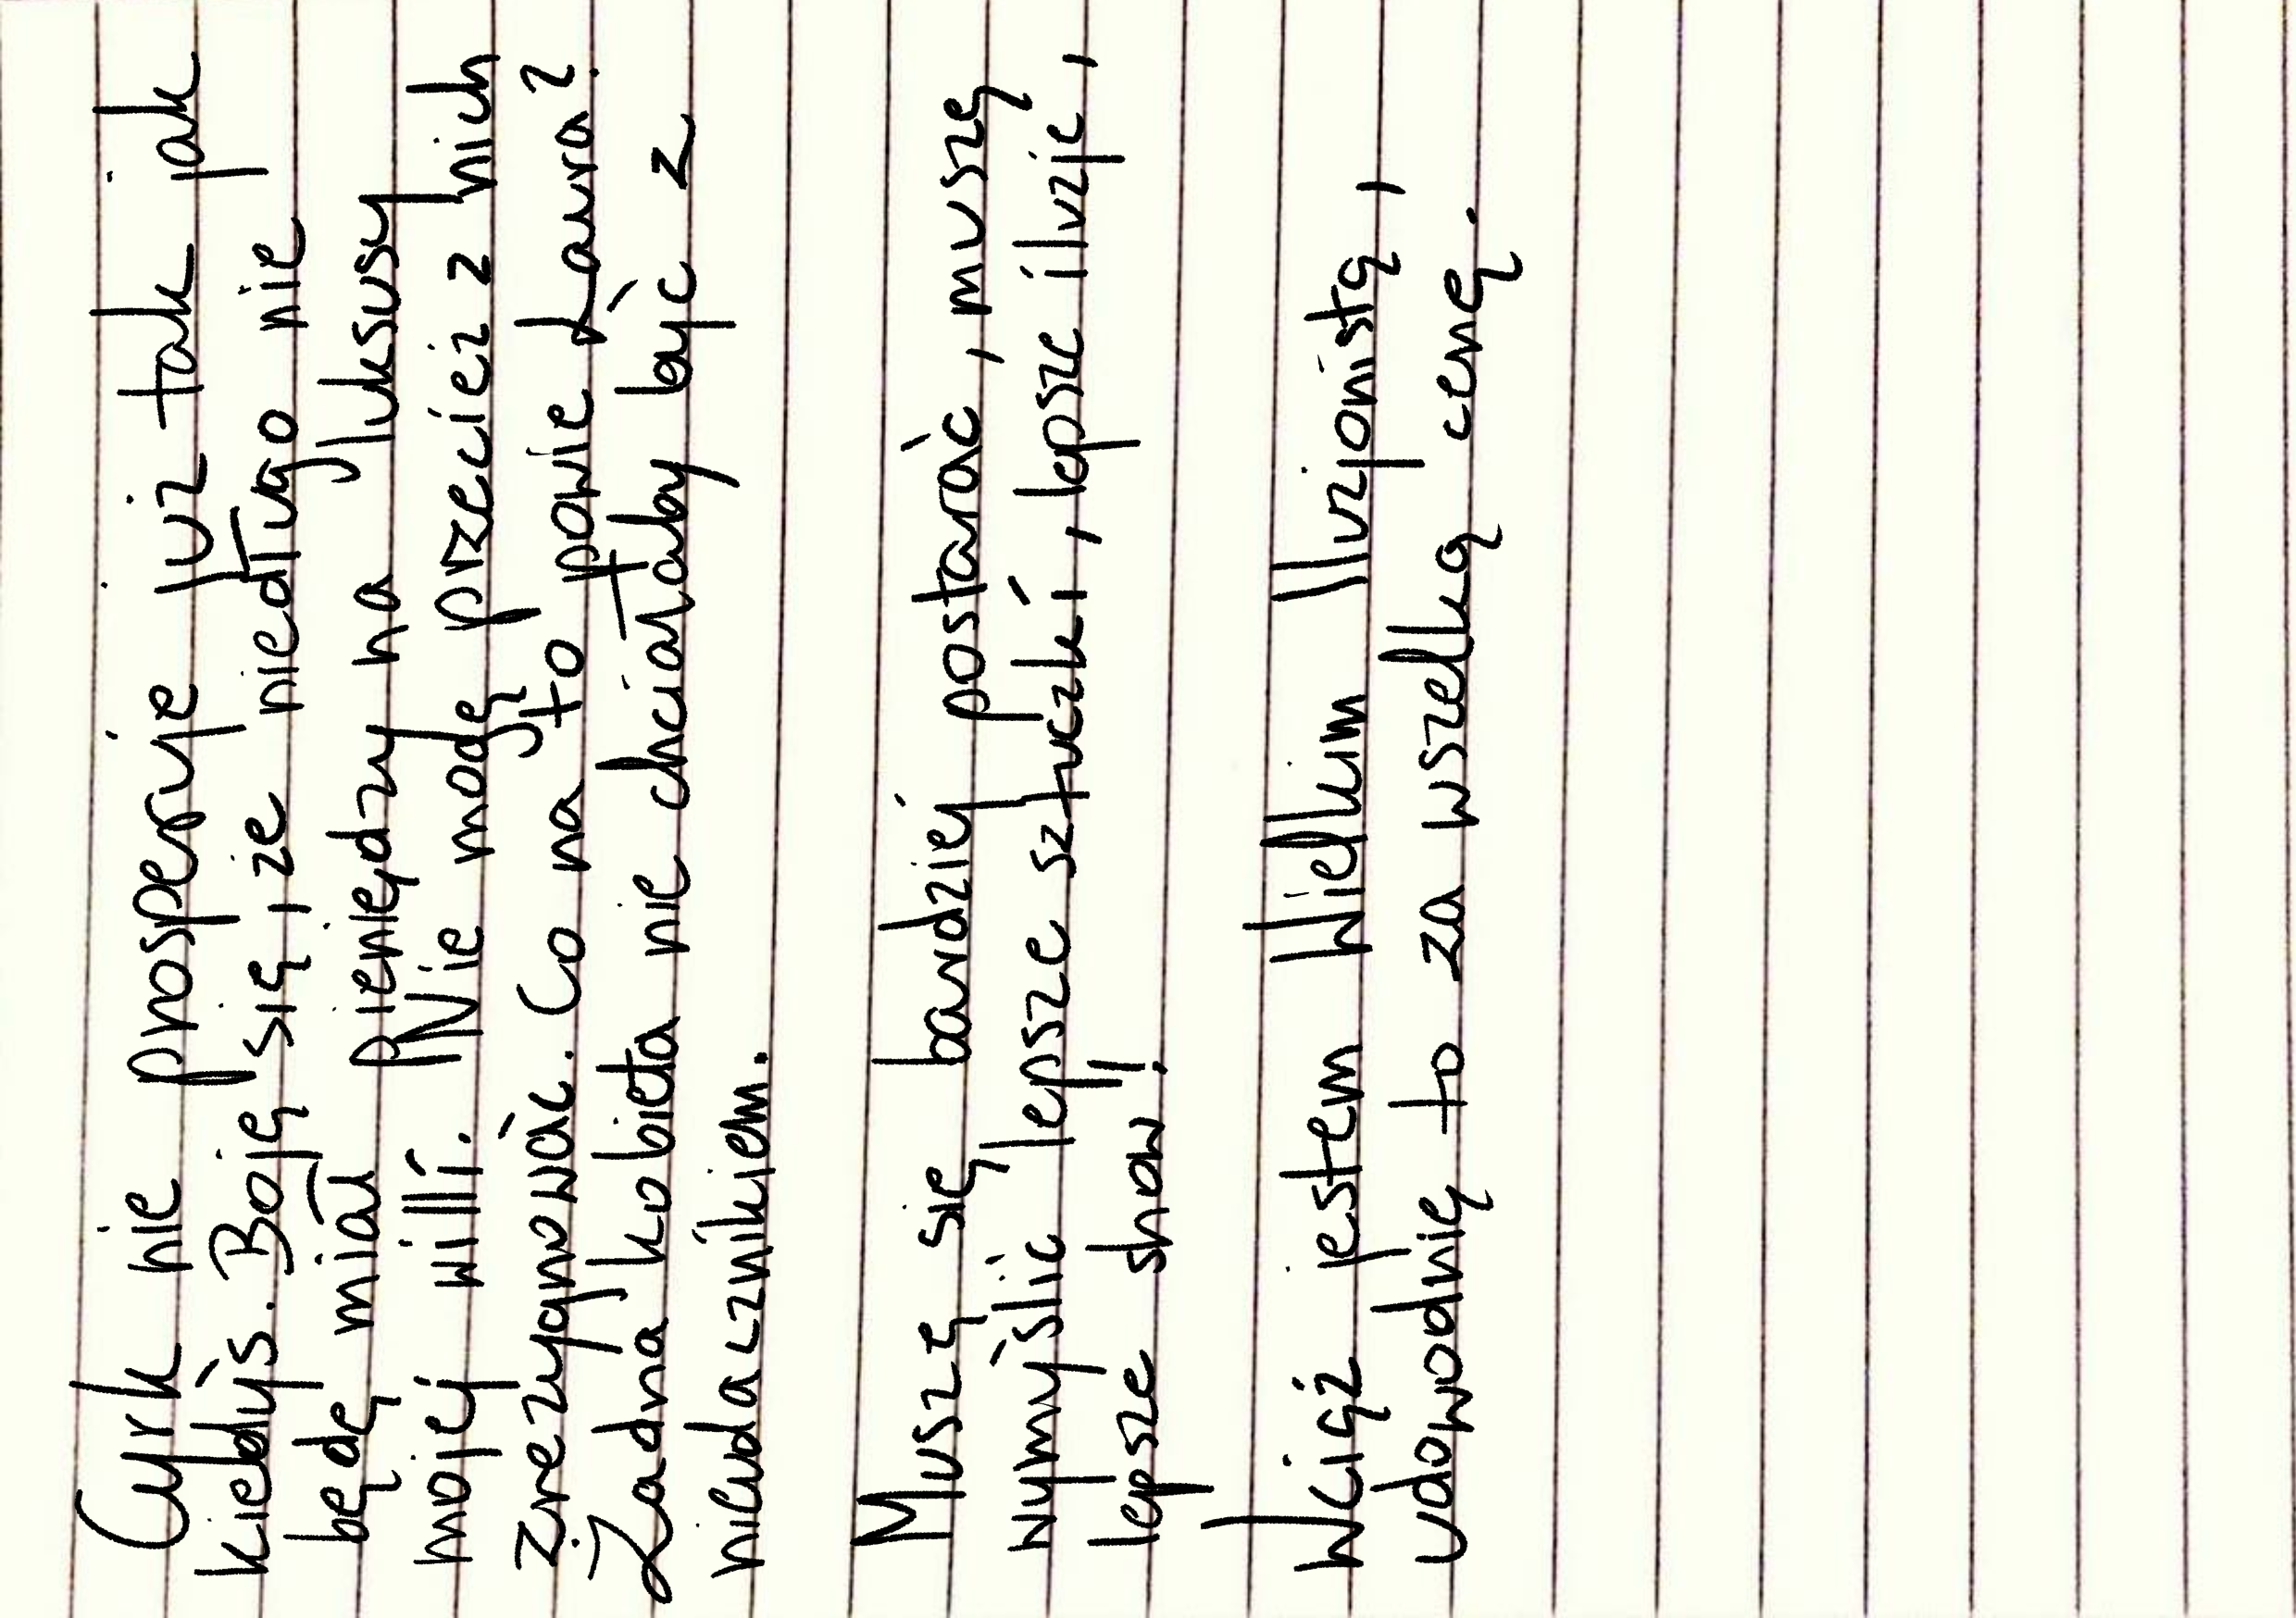 Cyrk nie prosperuje już tak jak
kiedyś. Boję się, że niedługo nie
będę miał pieniędzy na luksusy
mojej willi. Nie mogę przecież z nich
zrezygnować. Co na to powie Laura?
Żadna kobieta nie chciałaby być z
nieudacznikiem.
Muszę się bardziej postarać, muszę
wymyślić lepsze sztuczki, lepsze iluzje,
lepsze show!
Wciąż jestem Wielkim Iluzjonistą,
udowodnię to za wszelką cenę.